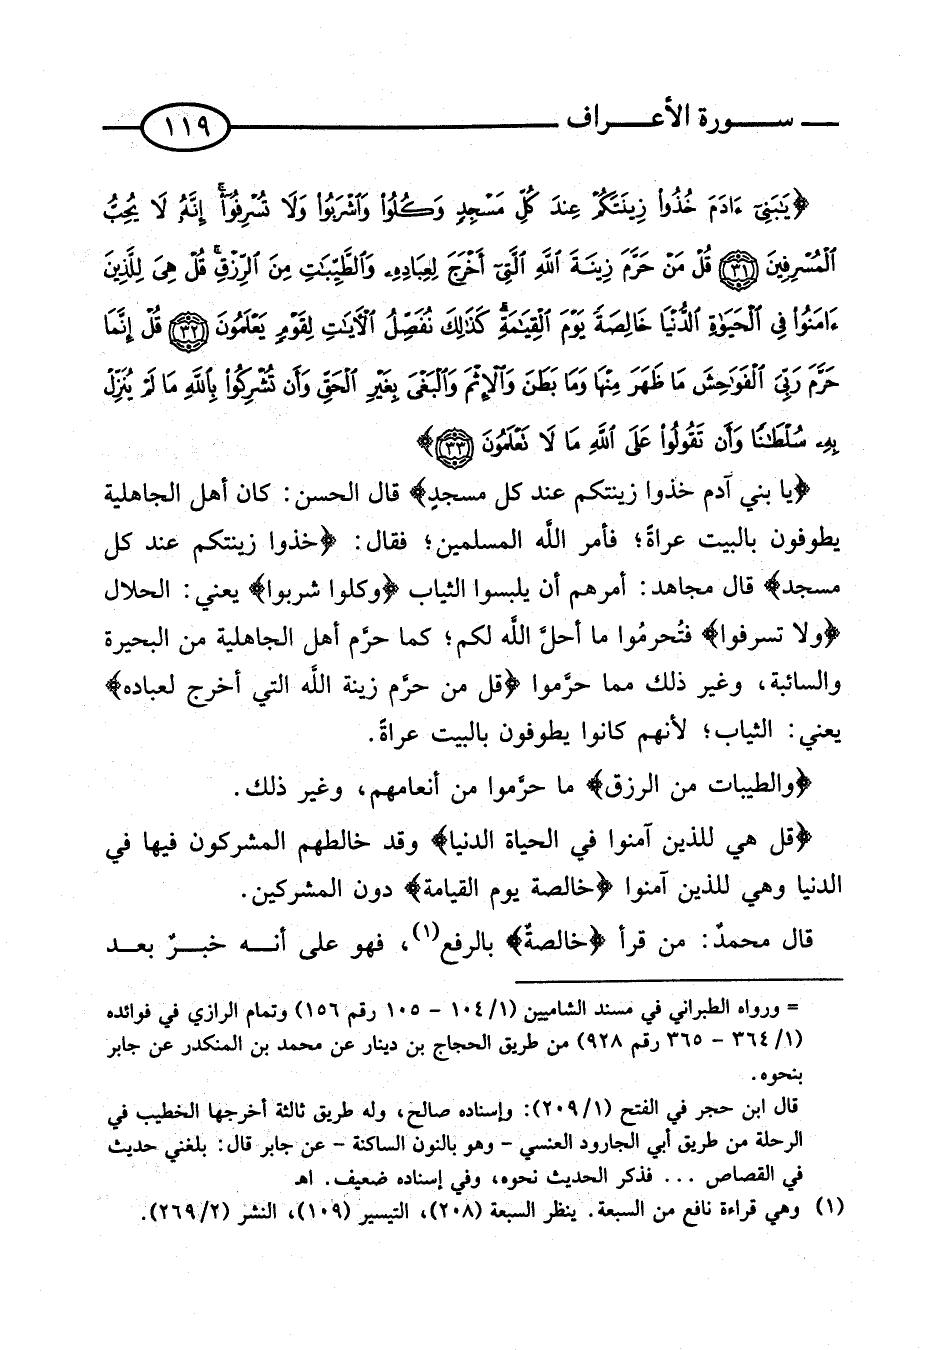 سورة الأعراف ١١٩
﴿يَٰبَنِىٓ ءَادَمَ خُذُوا۟ زِينَتَكُمْ عِندَ كُلِّ مَسْجِدٍ وَكُلُوا۟ وَٱشْرَبُوا۟ وَلَا تُسْرِفُوٓا۟ ۚ إِنَّهُۥ لَا يُحِبُّ
ٱلْمُسْرِفِينَ ٣١ قُلْ مَنْ حَرَّمَ زِينَةَ ٱللَّهِ ٱلَّتِىٓ أَخْرَجَ لِعِبَادِهِۦ وَٱلطَّيِّبَٰتِ مِنَ ٱلرِّزْقِ ۚ قُلْ هِىَ لِلَّذِينَ
ءَامَنُوا۟ فِى ٱلْحَيَوٰةِ ٱلدُّنْيَا خَالِصَةً يَوْمَ ٱلْقِيَٰمَةِ ۗ كَذَٰلِكَ نُفَصِّلُ ٱلْءَايَٰتِ لِقَوْمٍ يَعْلَمُونَ ٣٢ قُلْ إِنَّمَا
حَرَّمَ رَبِّىَ ٱلْفَوَٰحِشَ مَا ظَهَرَ مِنْهَا وَمَا بَطَنَ وَٱلْإِثْمَ وَٱلْبَغْىَ بِغَيْرِ ٱلْحَقِّ وَأَن تُشْرِكُوا۟ بِٱللَّهِ مَا لَمْ يُنَزِّلْ
بِهِۦ سُلْطَٰنًا وَأَن تَقُولُوا۟ عَلَى ٱللَّهِ مَا لَا تَعْلَمُونَ ٣٣﴾
﴿يا بني آدم خذوا زينتكم عند كل مسجدٍ﴾ قال الحسن: كان أهل الجاهلية
يطوفون بالبيت عراةً؛ فأمر اللَّه المسلمين؛ فقال: ﴿خذوا زينتكم عند كل
مسجد﴾ قال مجاهد: أمرهم أن يلبسوا الثياب ﴿وكلوا شربوا﴾ يعني: الحلال
﴿ولا تسرفوا﴾ فتُحرمُوا ما أحلَّ اللَّه لكم؛ كما حرَّم أهل الجاهلية من البحيرة
والسائبة، وغير ذلك مما حرَّموا ﴿قل من حرَّم زينة اللَّه التي أخرج لعباده﴾
يعني: الثياب؛ لأنهم كانوا يطوفون بالبيت عراةً.
﴿والطيبات من الرزق﴾ ما حرَّموا من أنعامهم، وغير ذلك.
﴿قل هي للذين آمنوا في الحياة الدنيا﴾ وقد خالطهم المشركون فيها في
الدنيا وهي للذين آمنوا ﴿خالصة يوم القيامة﴾ دون المشركين.
قال محمدٌ: من قرأ ﴿خالصةٌ﴾ بالرفع(١)، فهو على أنه خبرٌ بعد
= ورواه الطبراني في مسند الشاميين (١/ ١٠٤ - ١٠٥ رقم ١٥٦) وتمام الرازي في فوائده
(١/ ٣٦٤ - ٣٦٥ رقم ٩٢٨) من طريق الحجاج بن دينار عن محمد بن المنكدر عن جابر
بنحوه.
قال ابن حجر في الفتح (١/ ٢٠٩): وإسناده صالح، وله طريق ثالثة أخرجها الخطيب في
الرحلة من طريق أبي الجارود العنسي - وهو بالنون الساكنة - عن جابر قال: بلغني حديث
في القصاص ... فذكر الحديث نحوه، وفي إسناده ضعيف. اهـ
(١) وهي قراءة نافع من السبعة. ينظر السبعة (٢٠٨)، التيسير (١٠٩)، النشر (٢/ ٢٦٩).